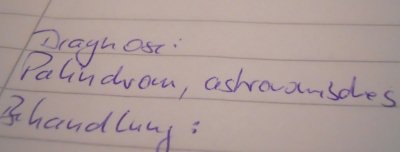 Diagnose:
Palindrom, astronomisches
Behandlung: